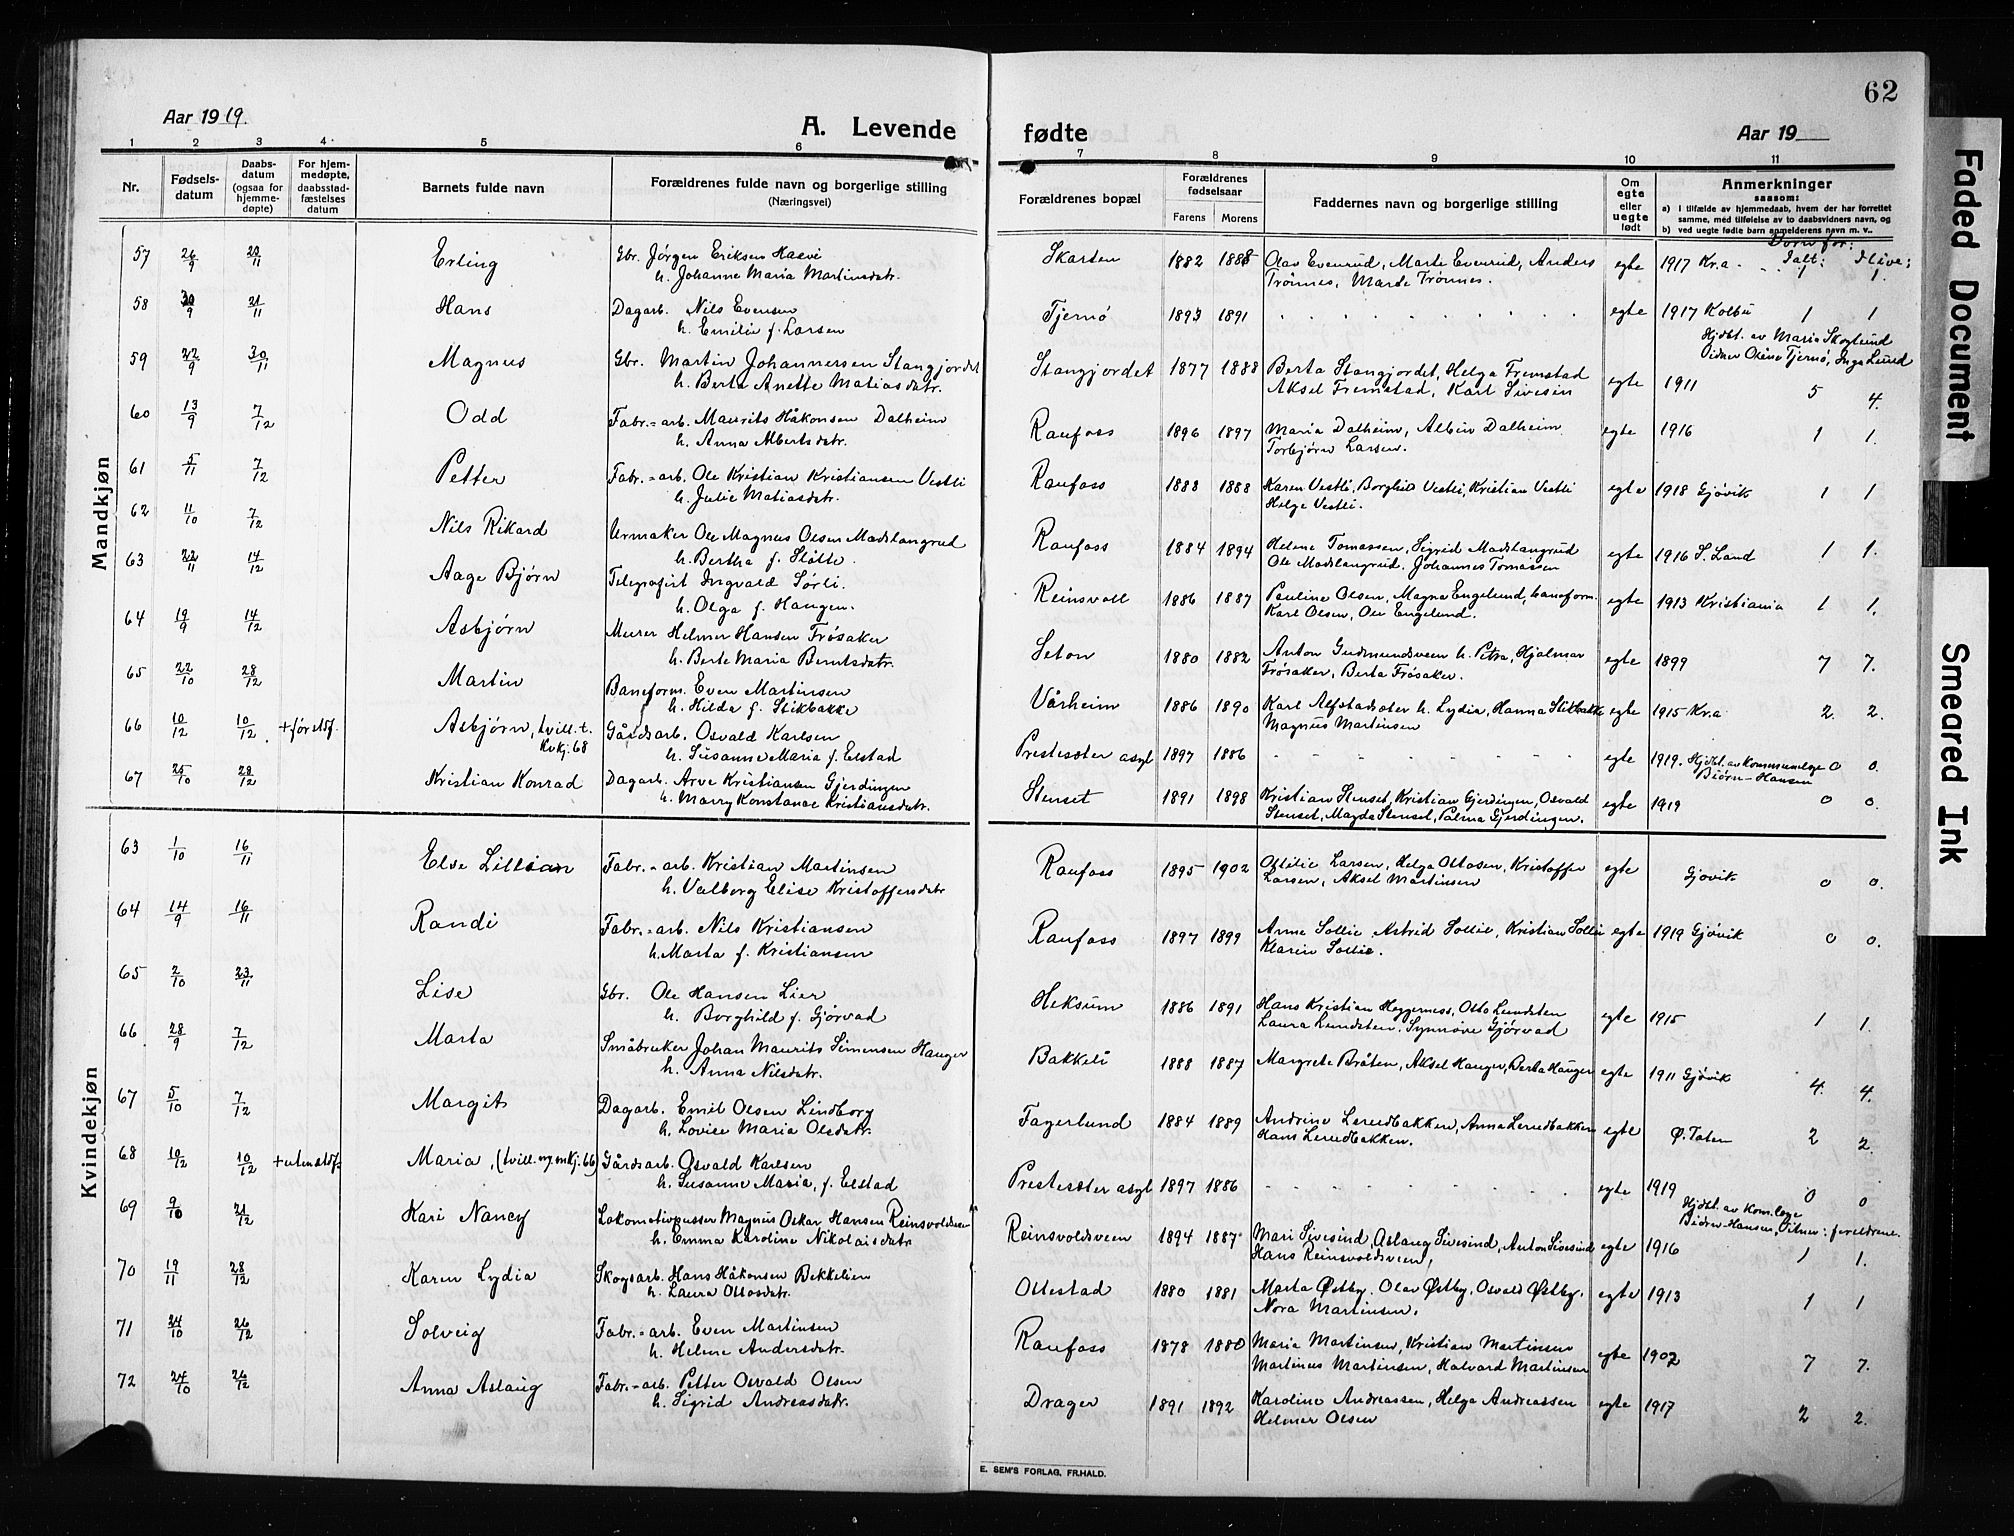 62
Aar 1919.
A. Levende fødte
Aar 19
1 2 3 4 5 6 7 8 9 10 11
Nr.
Fødsels-
datum
Daabs-
datum
(ogsaa for
hjemme-
døpte)
For hjem-
medøpte,
daabsstad-
fæstelses
datum
Barnets fulde navn
Forældrenes fulde navn og borgerlige stilling
(Næringsvei)
Forældrenes bopæl
Forældrenes
fødselsaar
Farens Morens
Faddernes navn og borgerlige stilling
Om
egte
eller
uegte
født
Anmerkninger
saasom:
a) I tilfælde av hjemmedaab, hvem der har forrettet
samme, med tilføielse av to daabsvidners navn, og
b) ved uegte fødte barn anmelderens navn m. v.
Mandkjøn
Born før:
Ialt: Ilive:
57 26/9 20/11 Erling Gbr. Jørgen Eriksen Haave Skarten 1882 1885 Olav Evenrud, Marte Evenrud, Anders egte 1917 Kr.a 1 1.
h. Johanne Maria Martinsdatr. Trønnes, Marte Trønnes.
58 30/9 21/11 Hans Dagarb. Nils Evensen Tjernø 1893 1891 egte 1917 Kolbu 1 1
h. Emilie f. Larsen Hjdbt. av Maria Skoglund
Vidner Oline Tjernø, Inga Lund
59 22/9 30/11 Magnus Gbr. Martin Johannersen Stangjordet Stangjordet 1877 1888 Berta Stangjordet, Helga Fremstad egte 1911 5 4.
h. Berta Anette Matiasdatr. Aksel Fremstad, Karl Sivesin
60 13/9 7/12 Odd Fabr.=arb. Maurits Håkonsen Dalheim Raufoss 1896 1897 Maria Dalheim, Albin Dalheim egte 1916 1 1.
h. Anna Albertsdatr. Torbjørn Larsen.
61 5/11 7/12 Petter Fabr.=arb. Ole Kristian Kristiansen Vestli Raufoss 1883 1888 Karen Vestli, Borghild Vestli, Kristian Vestli egte 1918 Gjøvik 1 1
h. Julie Matiasdatr. Helge Vestli.
62 11/10 7/12 Nils Rikard Urmaker Ole Magnus Olsen Madslangrud Raufoss 1884 1894 Helene Tomassen, Sigrid Madslangrud egte 1916 S. Land 1 1.
h. Bertha f. Slåtte. Ole Madslangrud. Johannes Tomassen
63 22/11 14/12 Aage Bjørn Telegrafist Ingvald Sørli. Reinsvoll 1886 1887 Pauline Olsen, Magna Engelund, baneform. egte 1913 Kristiania 1 1.
h. Olga f. Haugen. Karl Olsen, Ole Engelund.
64 19/9 14/12 Asbjørn Murer Helmer Hansen Frøsaker Seton 1880 1882 Anton Gudmundsveen h. Petra, Hjalmar egte 1899 7 7.
h. Berte Maria Berntsdatr. Frøsaker, Berta Frøsaker.
65 22/10 28/12 Martin Baneform. Even Martinsen Vårheim 1886 1890 Karl Alfstadsæter h. Lydia, Hanna Stikbakke egte 1915 Kr.a 2. 2.
h. Hilda f. Stikbakke Magnus Martinsen
66 10/12 10/12 + før stdf. Asbjørn, tvill. t. Gårdsarb. Osvald Karlsen Prestesæter asyl 1897 1886 egte 1919. Hjdbt. av kommunelæge 0 0.
Kvkj. 68 h. Susanne Maria f. Elstad Bjørn-Hansen
67 25/10 28/12 Kristian Konrad Dagarb. Arve Kristiansen Gjerdingen Stenset 1891 1898 Kristian Stenset, Kristian Gjerdingen, Osvald egte 1919 0 0.
h. Marry Konstance Kristiansdatr. Stenset, Magda Stenset, Palma Gjerdingen.
Kvindekjøn
63 1/10 16/11 Else Lillian Fabr.=arb. Kristian Martinsen Raufoss 1895 1902 Ottilie Larsen, Helga Ottosen, Kristoffer egte Gjøvik 0 0.
h. Valborg Elise Kristoffersdatr Larsen, Aksel Martinsen
64 14/9 16/11 Randi Fabr.=arb. Nils Kristiansen Raufoss 1897 1899 Anne Sollie Astrid Sollie, Kristian Sollie egte 1919 Gjøvik 0 0.
h. Marta f. Kristiansen Klarin Sollie.
65 2/10 23/11 Lise Gbr. Ole Hansen Lier Heksum 1886 1891 Hans Kristian Heggerness, Otto Lundsten egte 1915 1 1.
h. Borghild f. Gjørvad Laura Lundsten, Synnøve Gjørvad
66 28/9 7/12 Marta Småbruker Johan Maurits Simensen Hauger Bakkeli 1888 1887 Margrete Bråten, Aksel Hauger, Berta Hauger egte 1911 Gjøvik 4. 4.
h. Anna Nilsdatr.
67 5/10 7/12 Margit Dagarb. Emil Olsen Lindborg Fagerlund 1884 1889 Andrine Lerudbakken, Anna Lerudbakken egte Ø. Toten 2 2.
h. Lovise Maria Olsdatr. Hans Lerudbakken.
68 10/12 10/12 + uten stdf. Maria, (tvill. m. mkj. 66) Gårdsarb. Osvald Karlsen Prestesæter asyl 1897 1886 egte 1919 0 0
h. Susanne Maria, f. Elstad Hjdbt. av Kom.læge
69 9/10 21/12 Kari Nancy Lokomotivpusser Magnus Oskar Hansen Reinsvoldsveen Reinsvoldsveen 1894 1887 Mari Sivesind, Aslaug Sivesind, Anton Sivesind egte 1916 1 1.
h. Emma Karoline Nikolaisdatr Hans Reinsvoldsveen,
70 19/11 28/12 Karen Lydia Skogsarb. Hans Håkonsen Bekkelien Ottestad 1880 1881 Marta Østby. Olav Østby, Osvald Østby. egte 1913 1 1
h. Laura Ottosdatr. Nora Martinsen.
71 24/10 26/12 Solveig Fabr.=arb. Even Martinsen Raufoss 1878 1880 Maria Martinsen, Kristian Martinsen egte 1902 7 7.
h. Helene Andersdatr. Martinus Martinsen, Halvard Martinsen
72 24/10 26/12 Anna Aslaug Fabr.=arb. Petter Osvald Olsen Drager 1891 1892 Karoline Andreassen, Helga Andreassen egte 1917 2 2.
h. Sigrid Andreasdatr. Helmer Olsen
E. SEM'S FORLAG, FR.HALD.
Faded Document
Smeared Ink